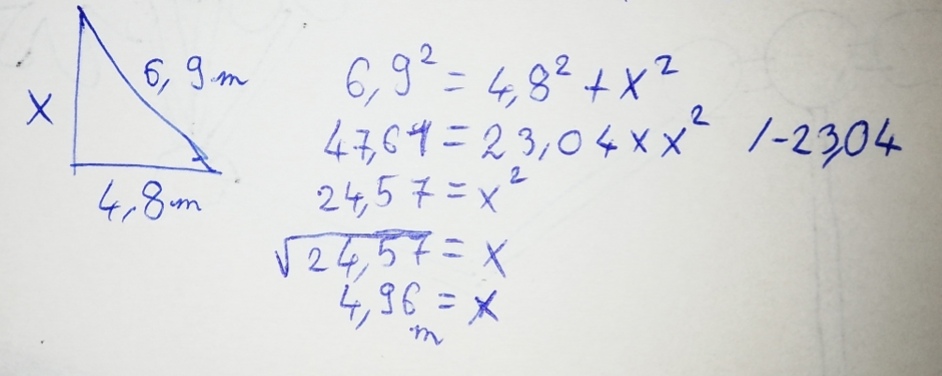 x
6,9m
4,8m
6,9² = 4,8² + x²
47,61 = 23,04 x x² /-23,04
24,57 = x²
√24,57 = x
4,96 m = x